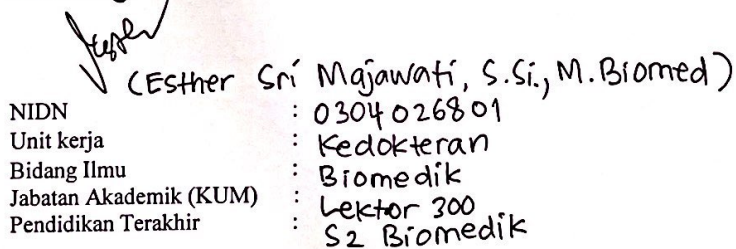 (Esther Sri Majawati, S.Si., M.Biomed)
NIDN : 0304026801
Unit kerja : Kedokteran
Bidang Ilmu : Biomedik
Jabatan Akademik (KUM) : Lektor 300
Pendidikan Terakhir : S2 Biomedik